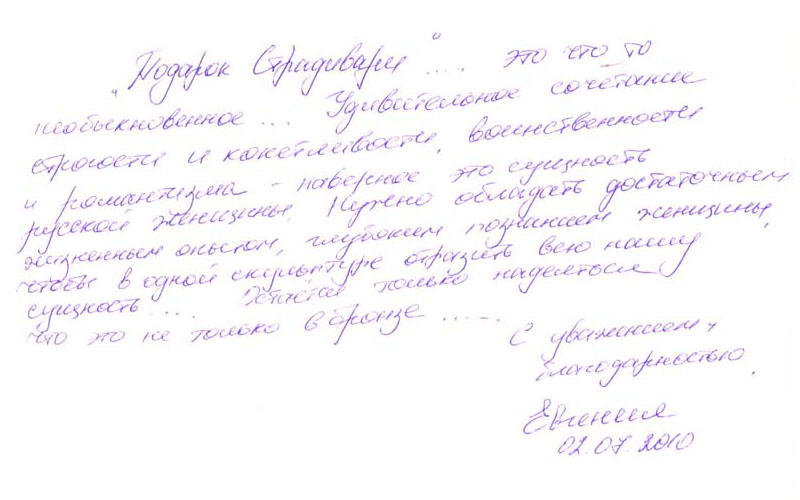 "Подарок Страдивари" .... это что-то
необыкновенное... Удивительное сочетание
строгости и кокетливости, воинственности
и романтизма - наверное это сущность
русской женщины. Нужно обладать достаточным
жизненным опытом, глубоким познанием женщины,
чтобы в одной скульптуре отразить всю нашу
сущность.... Остаётся только надеяться
что это не только в бронзе .....
С уважением,
благодарностью.
Евгения
02.07.2010